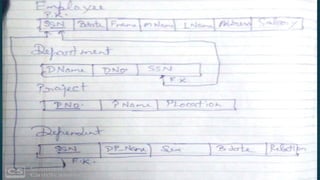 Employee
P.K.
SSN Bdate Fname MName LName Address Salary
Department
DName DNo. SSN
F.K
Project
PNo. PName PLocation
Dependent
SSN DP_Name Sex Bdate Relation
F.K.
CS